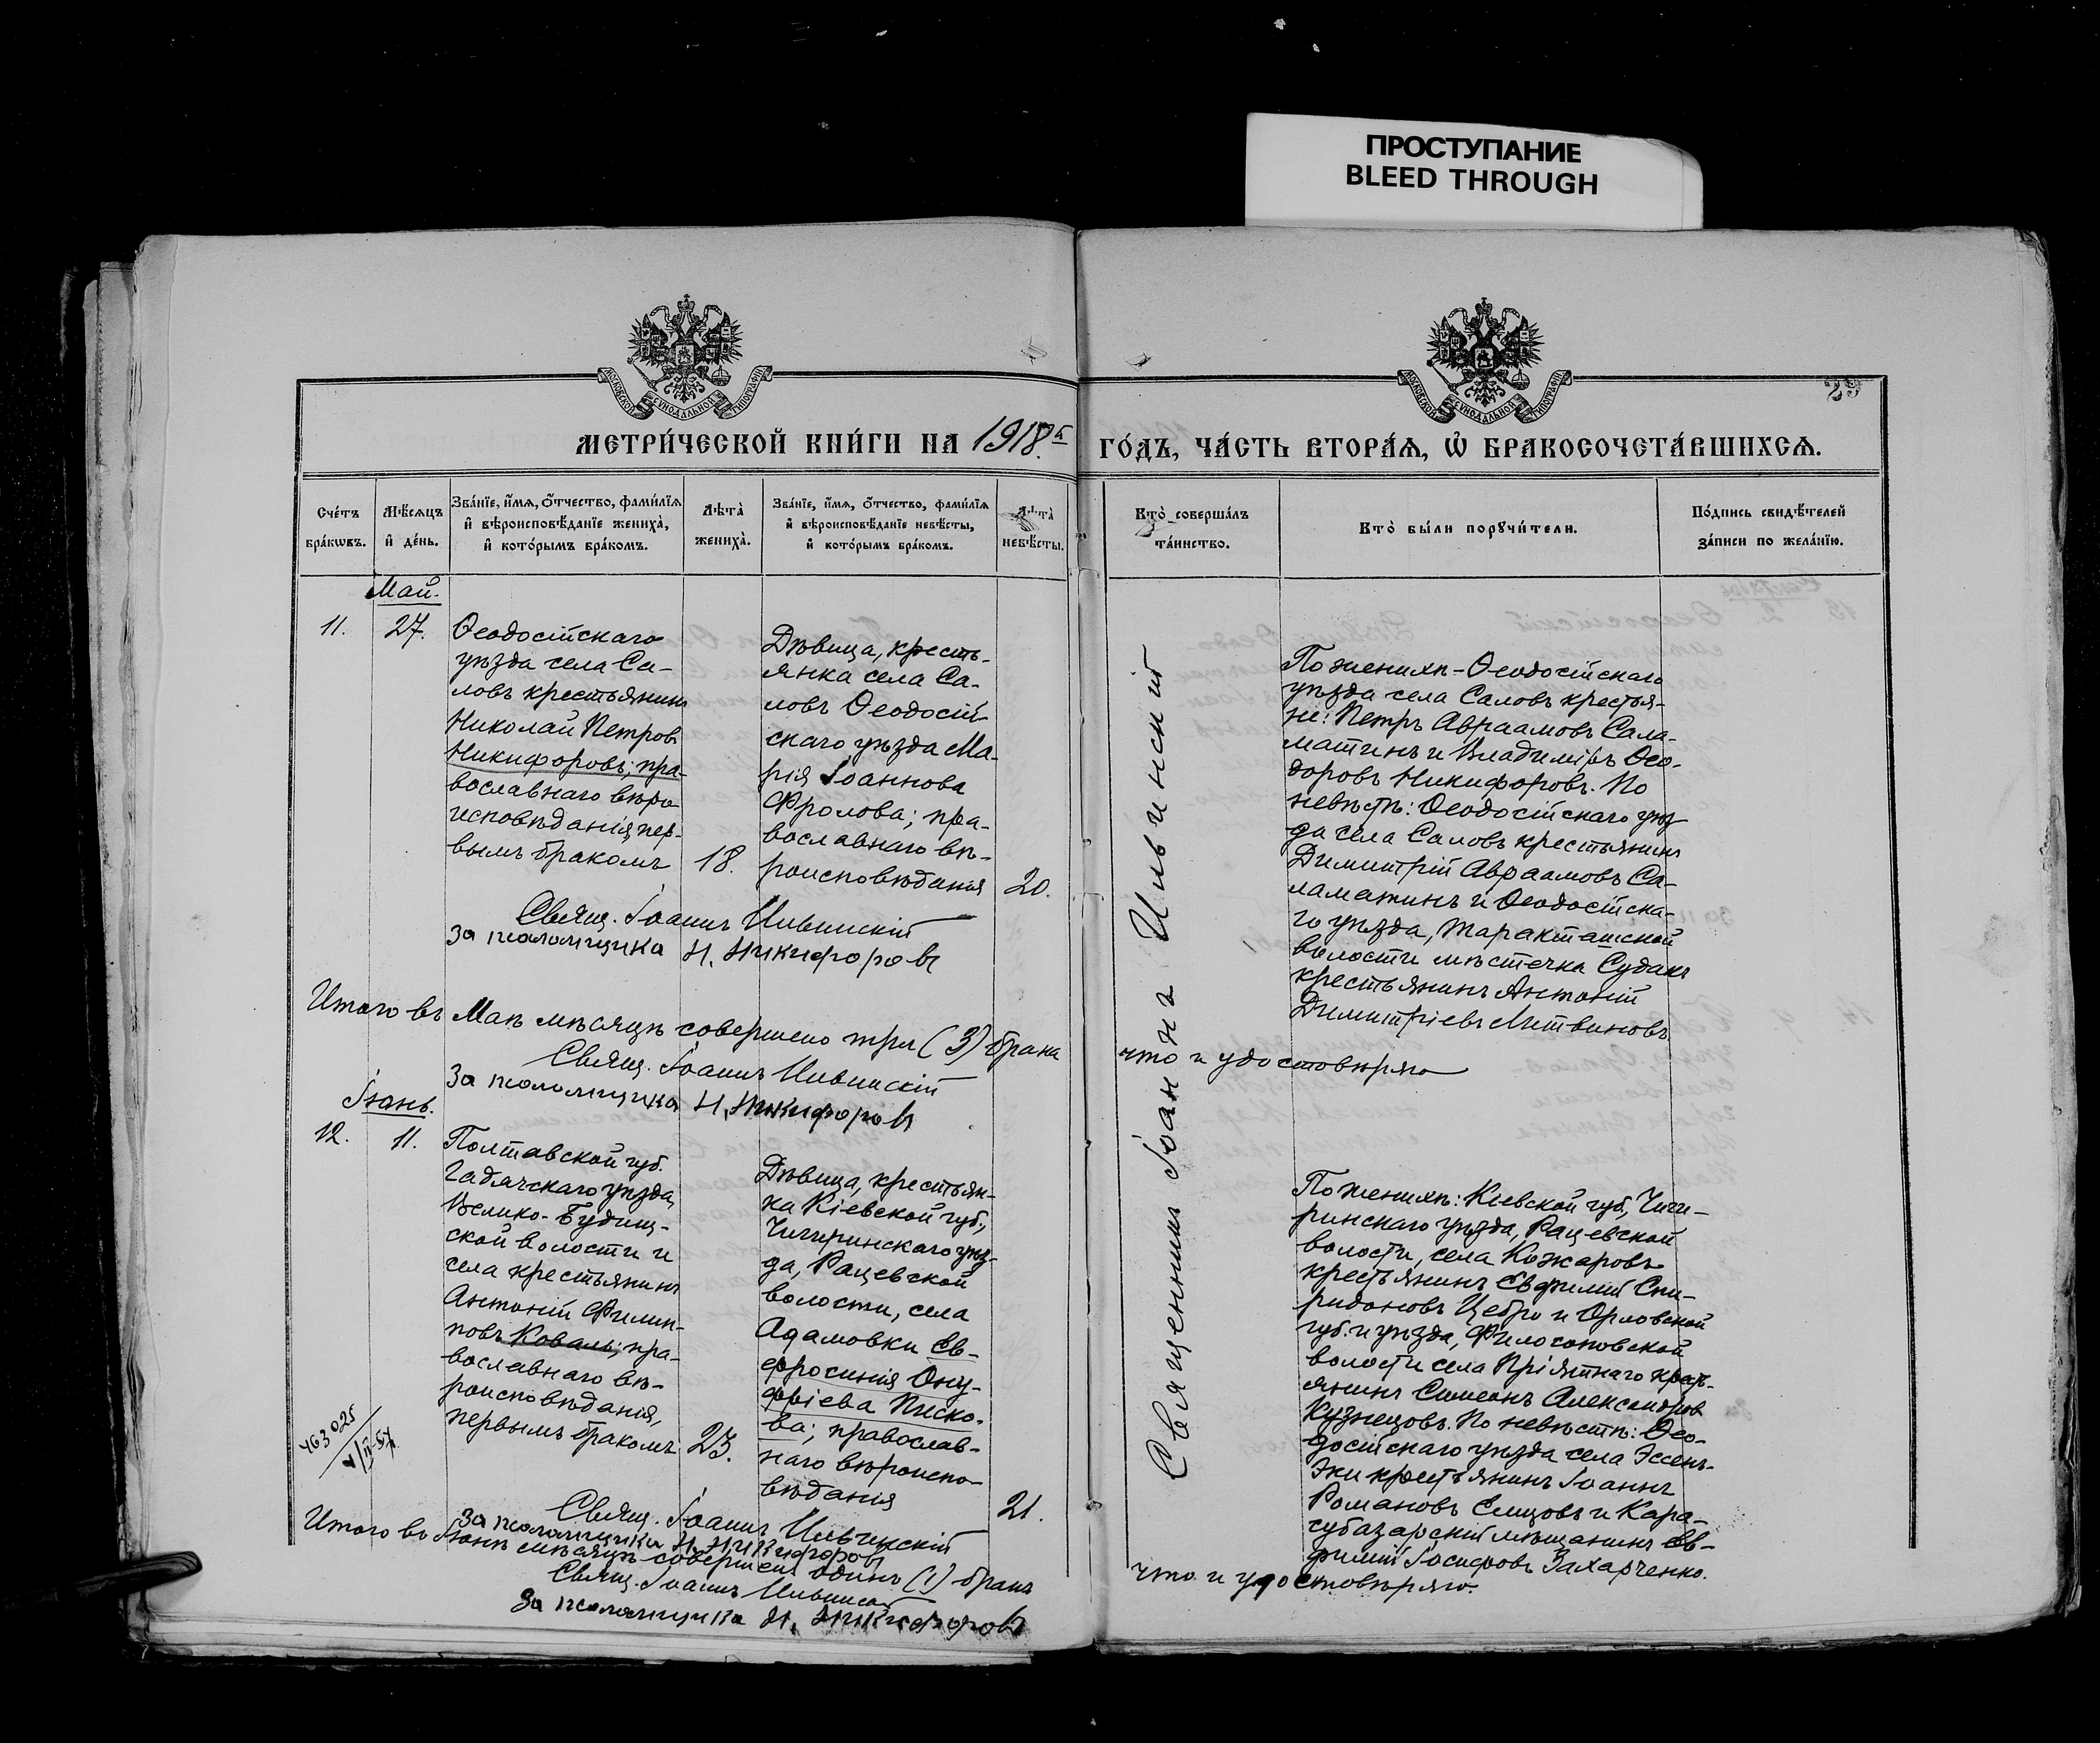 ПРОСТУПАНИЕ
BLEED THROUGH
МОСКОВСКОЙ СѴНОДАЛЬНОЙ ТИПОГРАФІИ
МОСКОВСКОЙ СѴНОДАЛЬНОЙ ТИПОГРАФІИ
29
МЕТРИ́ЧЕСКОЙ КНИ́ГИ НА 1918.й ГО́ДЪ, ЧА́СТЬ ВТОРА́Ѧ, Ѽ БРАКОСОЧЕТА́ВШИХСѦ.
Сче́тъ
бра́кѡвъ.
Мѣ́сѧцъ
и҆ де́нь.
Зва́нїе, и҆́мѧ, ѻ҆́тчество, фами́лїѧ
и҆ вѣроисповѣ́данїе жениха̀,
и҆ кото́рымъ бра́комъ.
Лѣта̀
жениха̀.
Зва́нїе, и҆́мѧ, ѻ҆́тчество, фами́лїѧ
и҆ вѣроисповѣ́данїе невѣ́сты,
и҆ кото́рымъ бра́комъ.
Лѣта̀
невѣ́сты.
Кто̀ соверша́лъ
та́инство.
Кто̀ бы́ли порꙋчи́тели.
По́дпись свидѣ́телей
за́писи по жела́нїю.
Май.
11.
27.
Ѳеодосійскаго
уѣзда села Са-
ловъ крестьянинъ
Николай Петровъ
Никифоровъ; пра-
вославнаго вѣро
исповѣданія, пер-
вымъ бракомъ
18.
Дѣвица, кресть-
янка села Са-
ловъ Ѳеодосій-
скаго уѣзда Ма-
рія Іоаннова
Фролова; пра-
вославнаго вѣ-
роисповѣданія
20.
Свящ. Іоаннъ Ильинскій
За псаломщика Н. Никифоровъ
Священникъ Іоаннъ Ильинскій
По женихѣ - Ѳеодосійскаго
уѣзда села Саловъ крестья-
не: Петръ Авраамовъ Сала-
матинъ и Владиміръ Ѳео-
доровъ Никифоровъ. По
невѣстѣ: Ѳеодосійскаго уѣз
да села Саловъ крестьянинъ
Димитрій Авраамовъ Са-
ламатинъ и Ѳеодосійска-
го уѣзда, Таракташской
волости мѣстечка Судакъ
крестьянинъ Антоній
Димитріевъ Литвиновъ
Итого въ Маѣ мѣсяцѣ совершено три (3) брака
что и удостовѣряю
Свящ. Іоаннъ Ильинскій
За псаломщика Н. Никифоровъ
Іюнь.
12.
11.
Полтавской губ.
Гадячскаго уѣзда,
Велико-Будищ-
ской волости и
села крестьянинъ
Антоній Филип-
повъ Коваль; пра-
вославнаго вѣ-
роисповѣданія,
первымъ бракомъ
23.
Дѣвица, крестьян-
ка Кіевской губ.,
Чигиринскаго уѣз-
да, Рацевской
волости, села
Адамовки Ев-
фросинія Ону-
фріева Писко-
ва; православ-
наго вѣроиспо-
вѣданія
21.
По женихѣ: Кіевской губ., Чиги-
ринскаго уѣзда, Рацевской
волости, села Кожаровъ
крестьянинъ Евфимій Спи-
ридоновъ Цебро и Орловской
губ. и уѣзда, Философовской
волости села Пріятнаго крест-
янинъ Симеонъ Александровъ
Кузнецовъ. По невѣстѣ: Ѳео-
досійскаго уѣзда села Эссенъ-
Эки крестьянинъ Іоаннъ
Романовъ Емцовъ и Кара-
субазарскій мѣщанинъ Ев-
фимій Іосифовъ Захарченко.
463025
Свящ. Іоаннъ Ильинскій
За псаломщика Н. Никифоровъ
Итого въ Іюнѣ мѣсяцѣ совершенъ одинъ (1) бракъ
что и удостовѣряю.
Свящ. Іоаннъ Ильинскій
За псаломщика Н. Никифоровъ